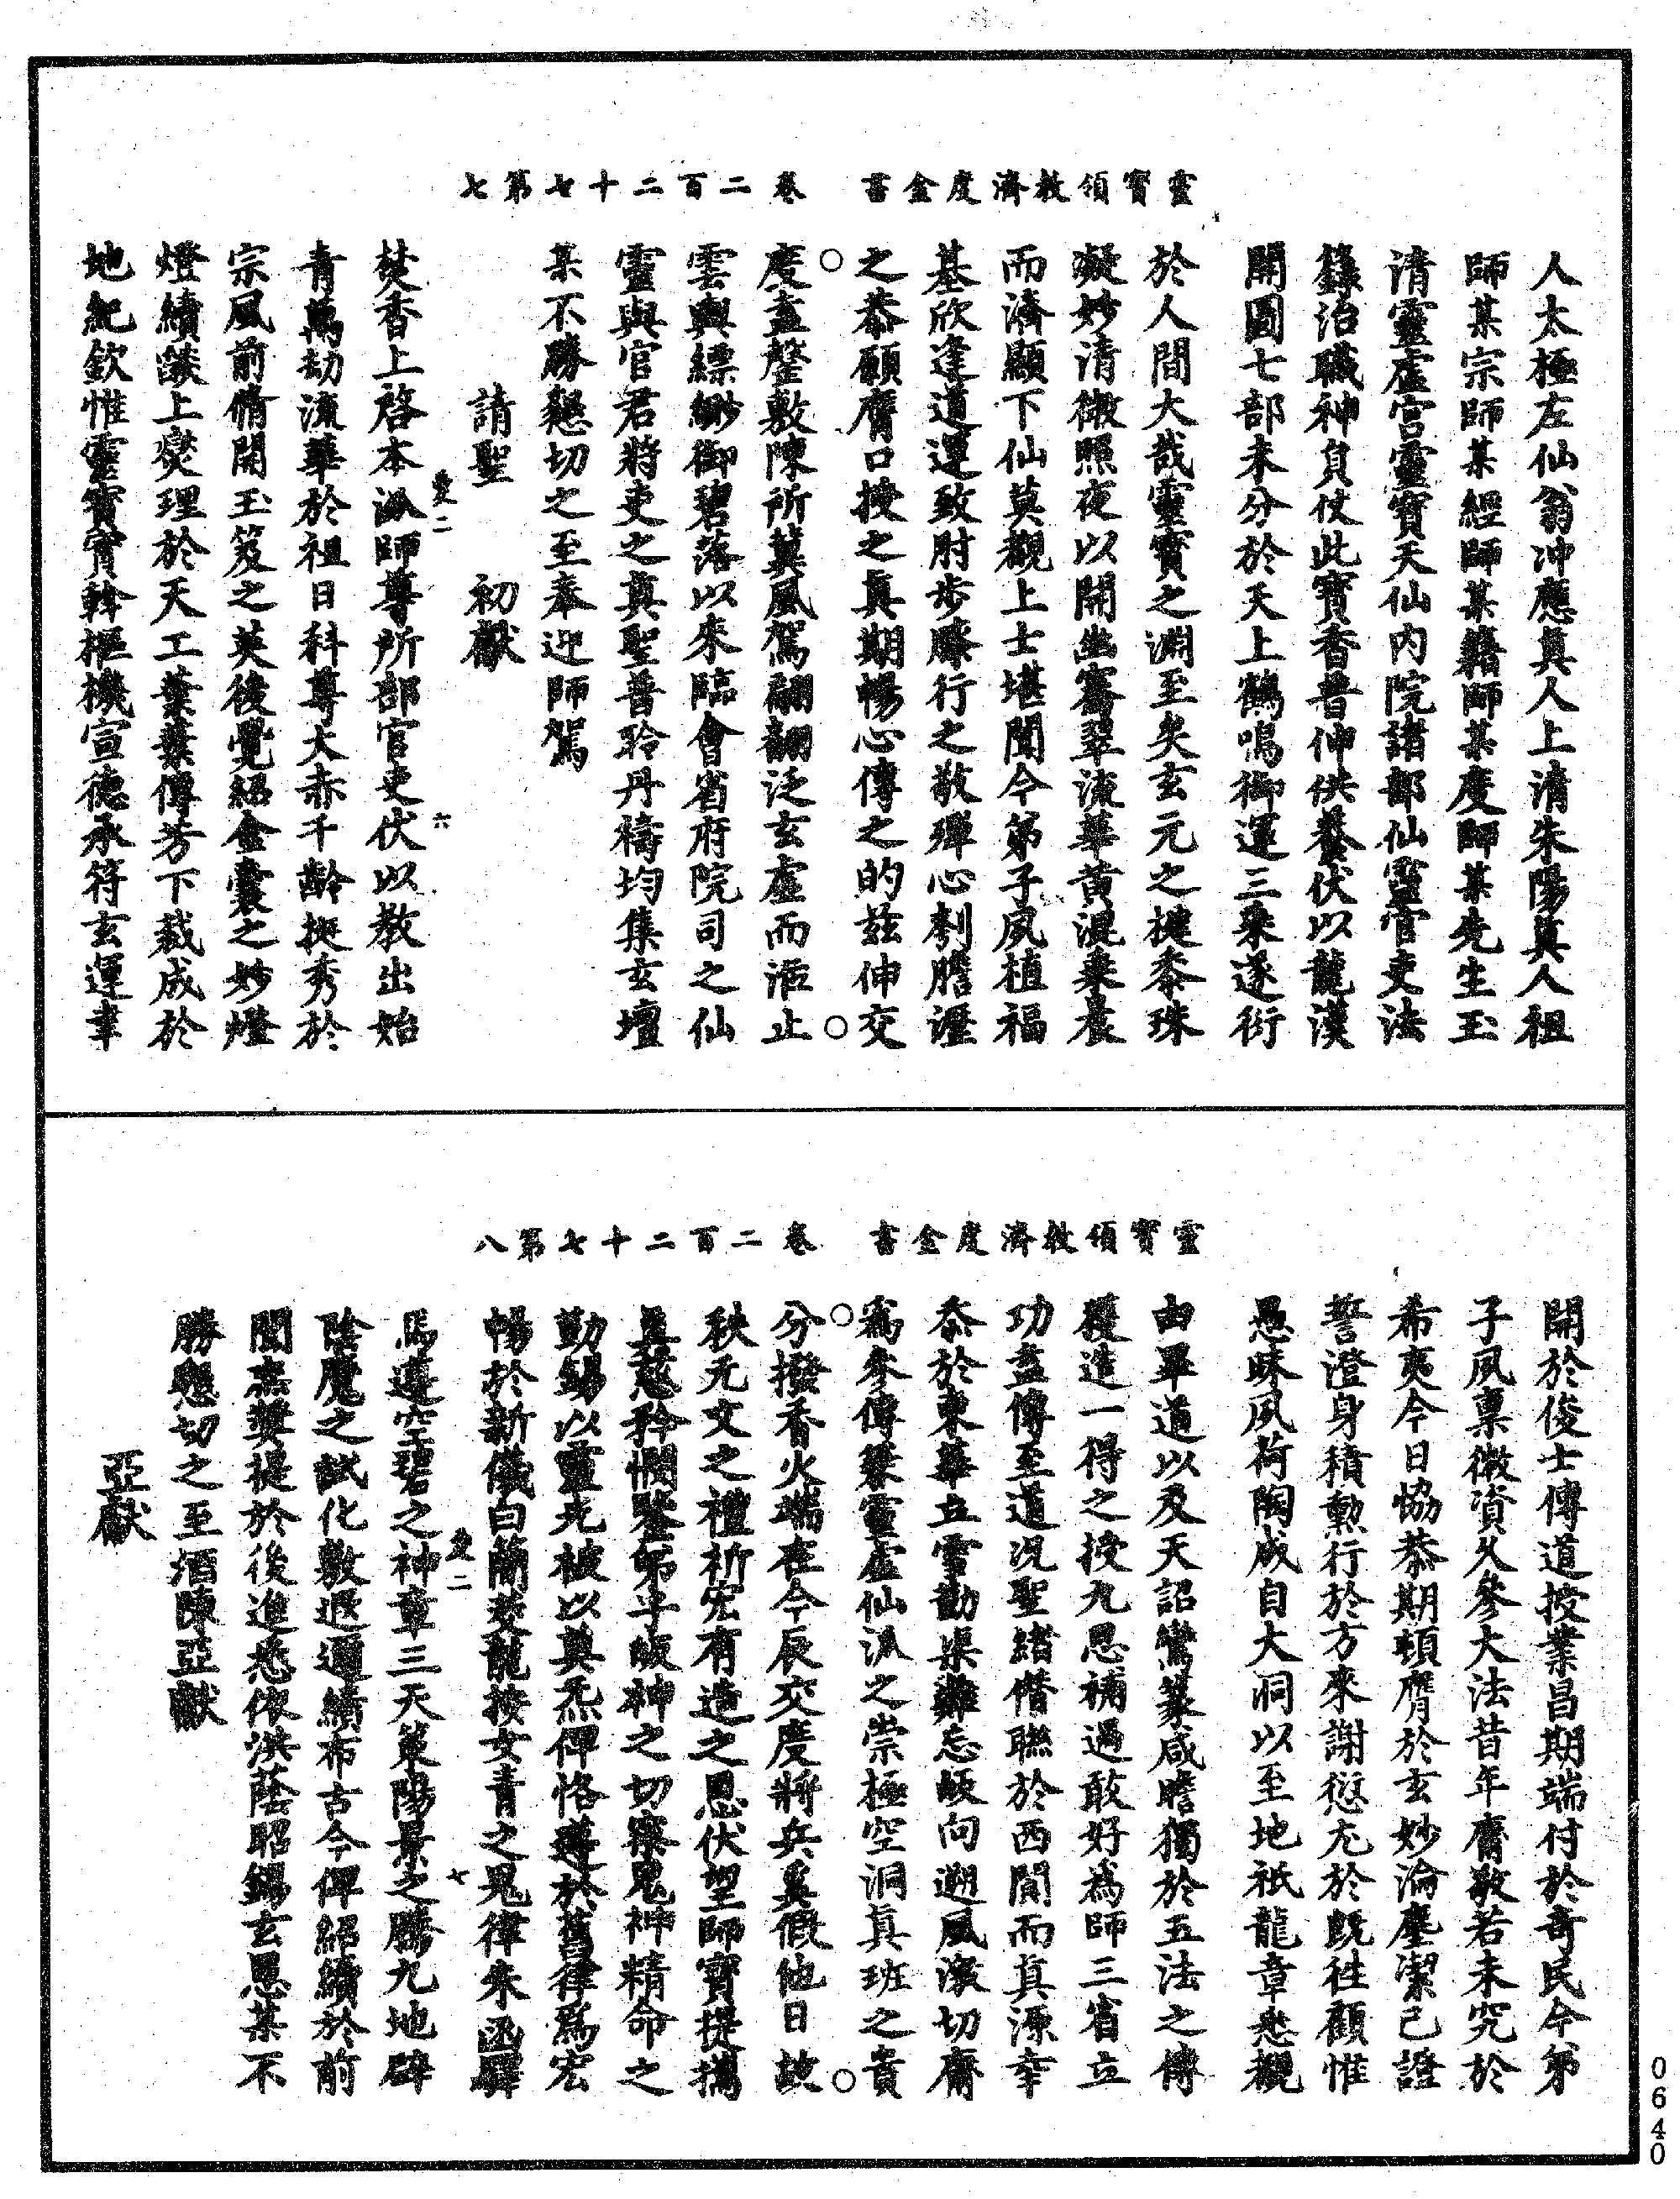 靈寶領教濟度金書　卷二百二十七第七
人太極左仙翁冲應真人上清朱陽真人祖
師某宗師某經師某籍師某度師某先生玉
清靈虛宮靈寶天仙內院諸部仙靈官吏法
籙治職神員仗此寶香普伸供養伏以龍漢
開圖七部未分於天上鶴鳴御運三乘遂衍
於人間大哉靈寶之淵至矣玄元之揵黍珠
凝妙清徽照夜以開幽寶翠流華黃混乘晨
而濟顯下仙莫覩上士堪聞今弟子夙植福
基欣逢道運致肘步膝行之敬殫心刳膽瀝
之恭願膺口授之真期暢心傳之的茲伸交
度盍罄敷陳所冀風駕翩翻泛玄虛而泝止
雲輿縹緲御碧落以來臨會省府院司之仙
靈與官君將吏之真聖普聆丹禱均集玄壇
某不勝懇切之至奉迎師駕
請聖　初獻
焚香上啓本派師尊所部官吏伏以教出始
青萬劫流華於祖日科尊大赤千齡挺秀於
宗風前脩開玉笈之英後覺紹金囊之妙燈
燈續燄上爕理於天工葉葉傳芳下裁成於
地紀欽惟靈寶寶幹樞機宣德承符玄運聿
靈寶領教濟度金書　卷二百二十七第八
開於俊士傳道授業昌期端付於奇民今弟
子夙稟微資久參大法昔年齋敬若未究於
希夷今日恊恭期頓膺於玄妙淪塵潔己證
誓澄身積勲行於方來謝愆尤於既徃顧惟
愚昧夙荷陶成自大洞以至地祇龍章悉覩
由畢道以及天詔鸞篆咸瞻獨於五法之傳
獲造一得之授九思補過敢好為師三省立
功盍傳至道況聖緒僭聯於西間而真源幸
忝於東華立雪勤渠難忘岐向遡風激切齋
為參傳繄靈虛仙派之崇極空洞真班之貴
分撥香火端在今辰交度將兵奚假他日故
秩元文之禮祈宏有造之恩伏望師寶提攜
真慈矜憫鑒弟子皈神之切察鬼神精命之
勤錫以靈光被以真炁俾恪遵於舊律爲宏
暢於新儀白簡芝龍按女青之鬼律朱函驛
馬遵空碧之神章三天策陽景之勝九地辟
陰魔之試化敷遐邇續布古今俾紹續於前
聞庶奬提於後進悉依洪蔭昭錫玄恩某不
勝懇切之至酒陳亞獻
亞獻
0640